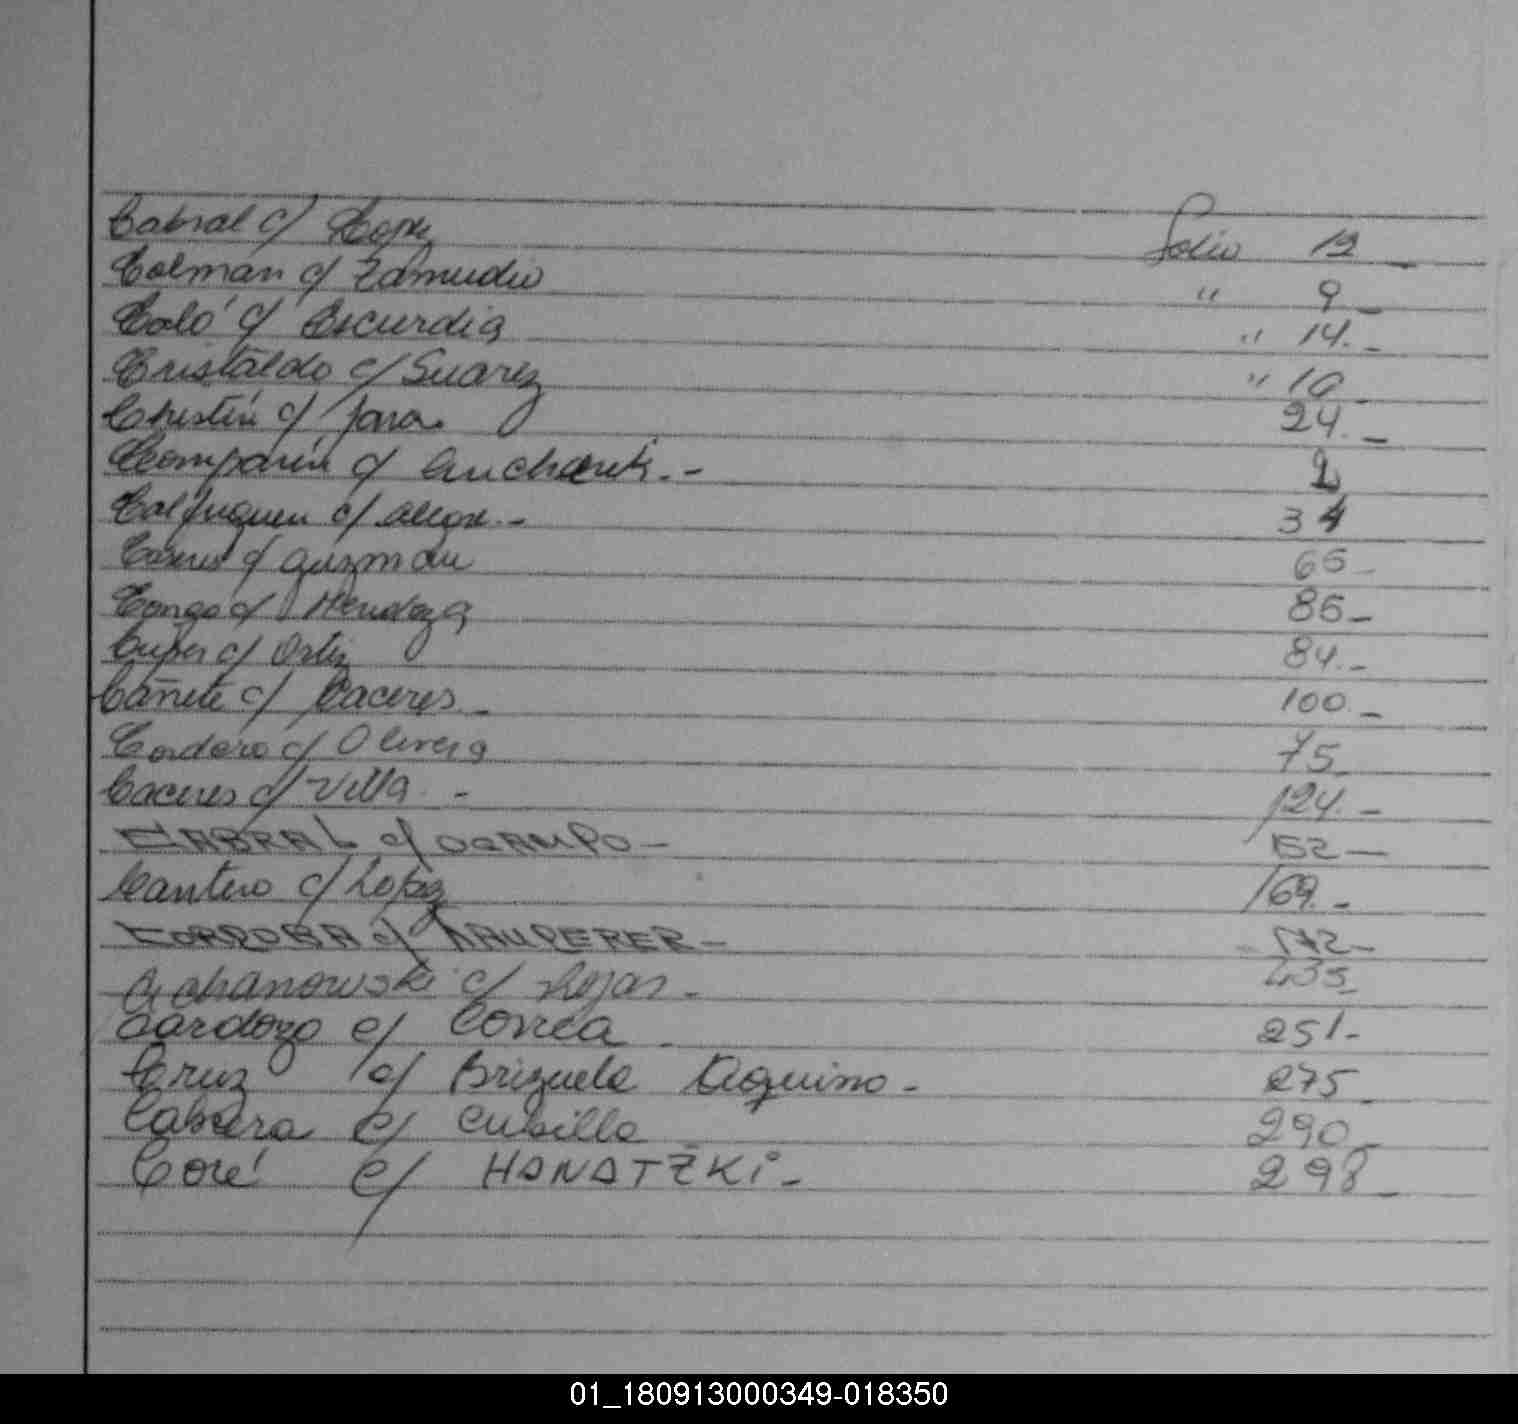 Cabral c/ Lopez Folio 12
Colman c/ Zamudio " 9
Coló c/ Escurdia " 14.
Cristaldo c/ Suarez " 10
Christin c/ Jara. 24.
Comparin c/ 2
c/ 34
Caseres c/ Guzman 65
Congo c/ Mendoza 86
c/ Ortiz 84.
Cañete c/ Caceres 100
Cordero c/ Olivera 75
Caceres c/ Villa. 124.
CABRAL c/ OCAMPO 152
Cantero c/ Lopez 169.
CORDOBA c/ 172
Cichanowski c/ Rojas 235
Cardozo c/ Correa 251
Cruz c/ Brizuela Aquino 275
Cabrera c/ Cubilla 290
Coré c/ HANATZKi 298
01_180913000349-018350